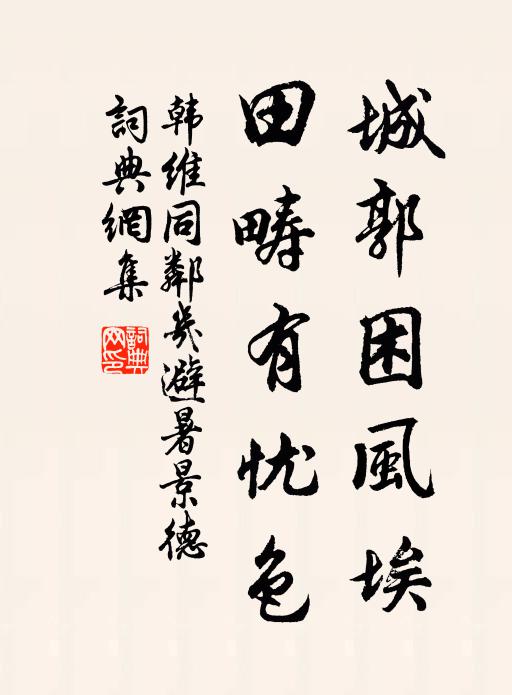 城郭困風埃
田疇有忧色
韩维同鄰幾避暑景德
詞典網集
詞典網印